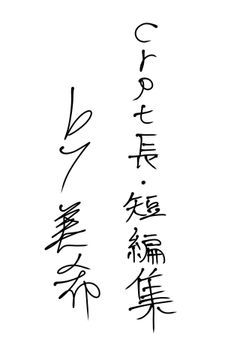 Crot長・短編集
by美希